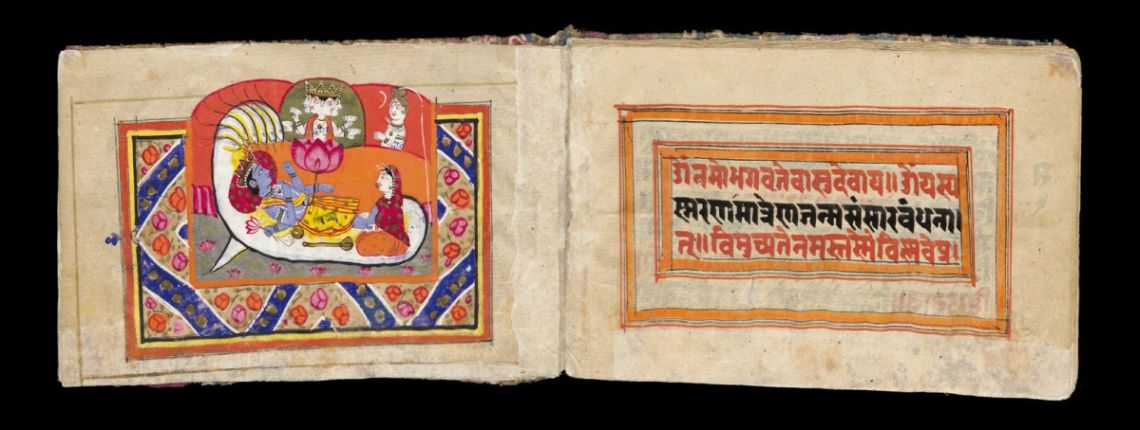 ॐनमोभगवतेवासुदेवाय॥ॐयस्य
स्मरणमात्रेणजन्मसंसारबंधना।
त्॥विमुच्यतेनमस्तस्मैविस्मवेप्र।